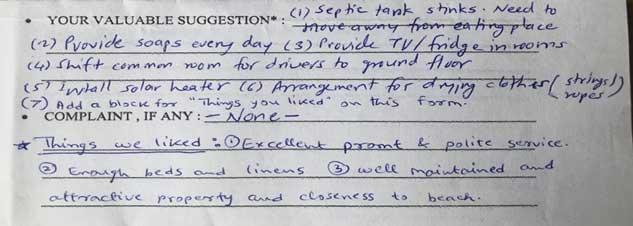 • YOUR VALUABLE SUGGESTION* : (1) Septic tank stinks. Need to
move away from eating place
(2) Provide soaps every day (3) Provide TV/fridge in rooms
(4) Shift common room for drivers to ground floor
(5) Install solar heater (6) Arrangement for drying clothes (strings/
ropes)
(7) Add a block for "Things you liked" on this form.
• COMPLAINT, IF ANY : - None -
* Things we liked : ① Excellent promt & polite service.
② Enough beds and linens ③ well maintained and
attractive property and closeness to beach.